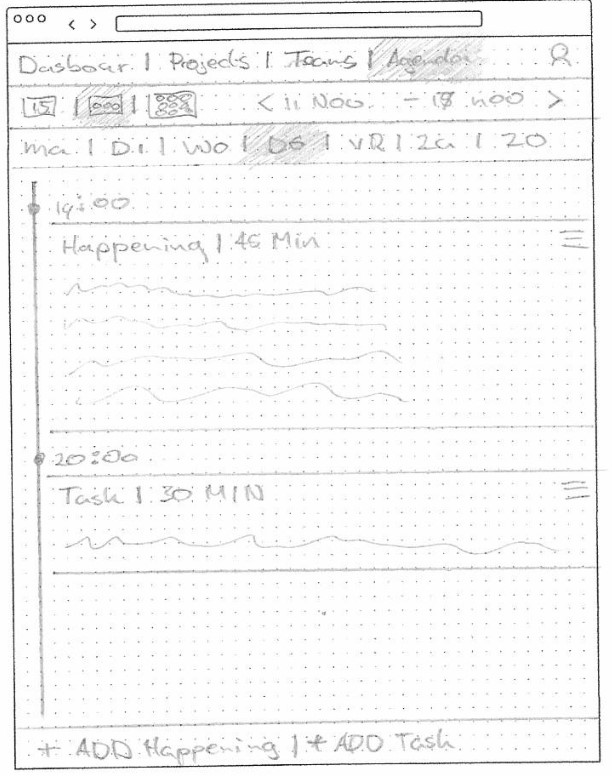 Dasboar. | Projects | Teams | Agenda
15 | | < 11 Nov. - 18 nov >
ma | D.I. | Wo | DO | VR | Za | ZO
19:00
Happening | 45 Min
20:00
Task | 30 MIN
+ ADD Happening | + ADD Task